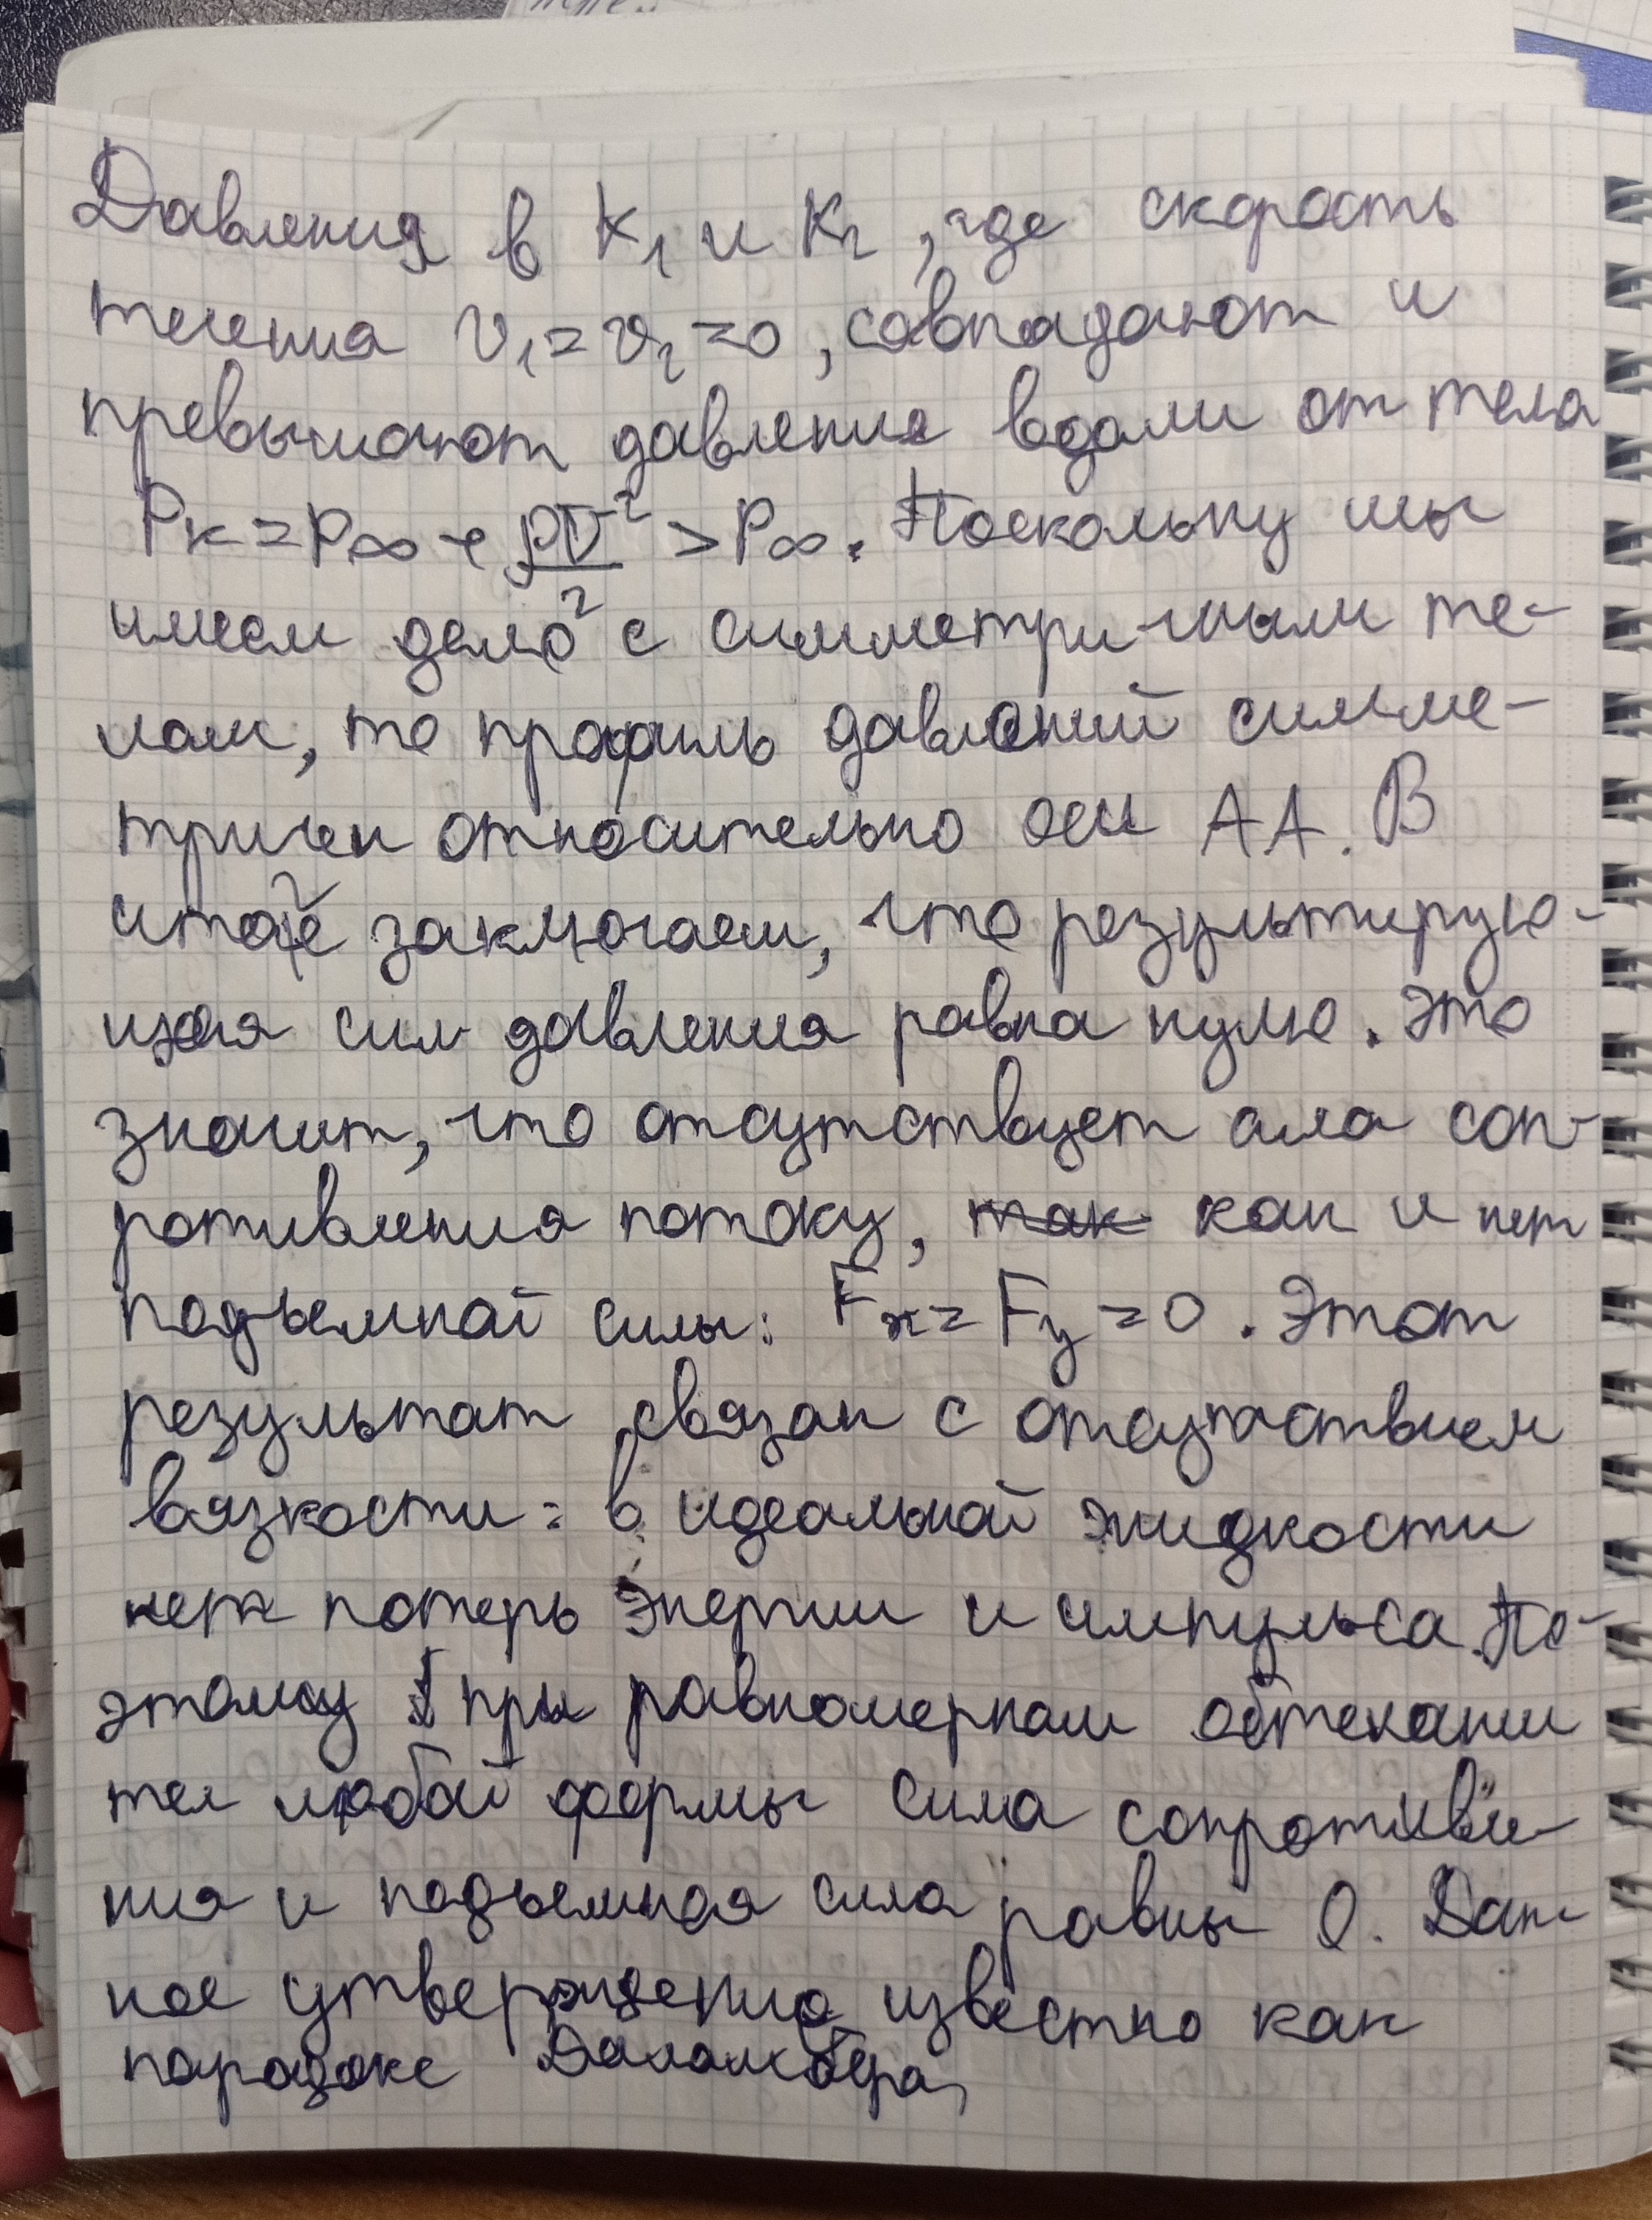 Давления в K₁ и K₂, где скорость
течения v₁=v₂=0, совпадают и
превышают давления вдали от тела
Pк=P∞+ρv²/2 >P∞. Поскольку мы
имеем дело с симметричным те-
лом, то профиль давлений симме-
тричен относительно оси AA. В
итоге заключаем, что результирую-
щая сил давления равна нулю. Это
значит, что отсутствует сила соп-
ротивления потоку, так как и нет
подъемной силы: Fx=Fy=0. Этот
результат связан с отсутствием
вязкости: в идеальной жидкости
нет потерь энергии и импульса. По-
этому при равномерном обтекании
тел любой формы сила сопротивле-
ния и подъемная сила равны 0. Дан-
ное утверждение известно как
парадокс Даламбера,